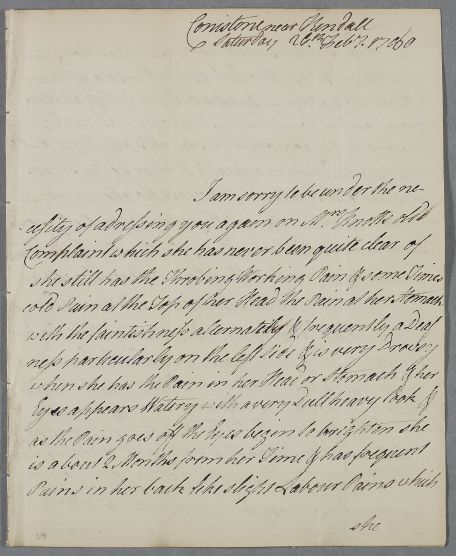 Conistone near Kendall
Saturday 26th Feby.
I am sorry to be under the ne-
cessity of adressing you again on Mrs Knotts old
Complaint which she has never been quite clear of
she still has the Throbing Working Pain & some Times
cold Pain at the Top of her Head the Pain at her Stomach
with the faintishness alternatily & frequently a Deaf
ness particularly on the left Side & is very Drowsy
when she has the Pain in her Head or Stomach & her
Eyes appears Watery with a very Dull heavy look &
as the Pain goes off the Eyes begin to brighton she
is about 2 Months from her Time & has frequent
Pains in her back like slight Labour Pains which
she